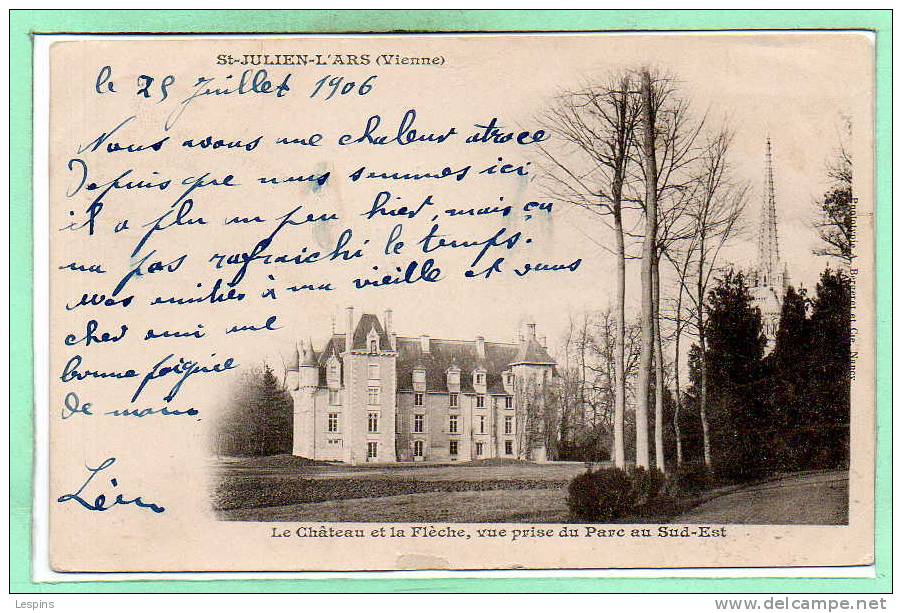 St-JULIEN-L'ARS (Vienne)
le 25 Juillet 1906
Nous avons une chaleur atroce
Depuis que nous sommes ici,
il a plu un peu hier, mais ça
na pas rafraichi le temps.
mes amitiés à ma vieille et vous
cher ami une
bonne poignée
de main
Léon
Le Château et la Flèche, vue prise du Parc au Sud-Est
Phototypie A. Bergeret et Cie, Nancy
Lespins
http://www.delcampe.net